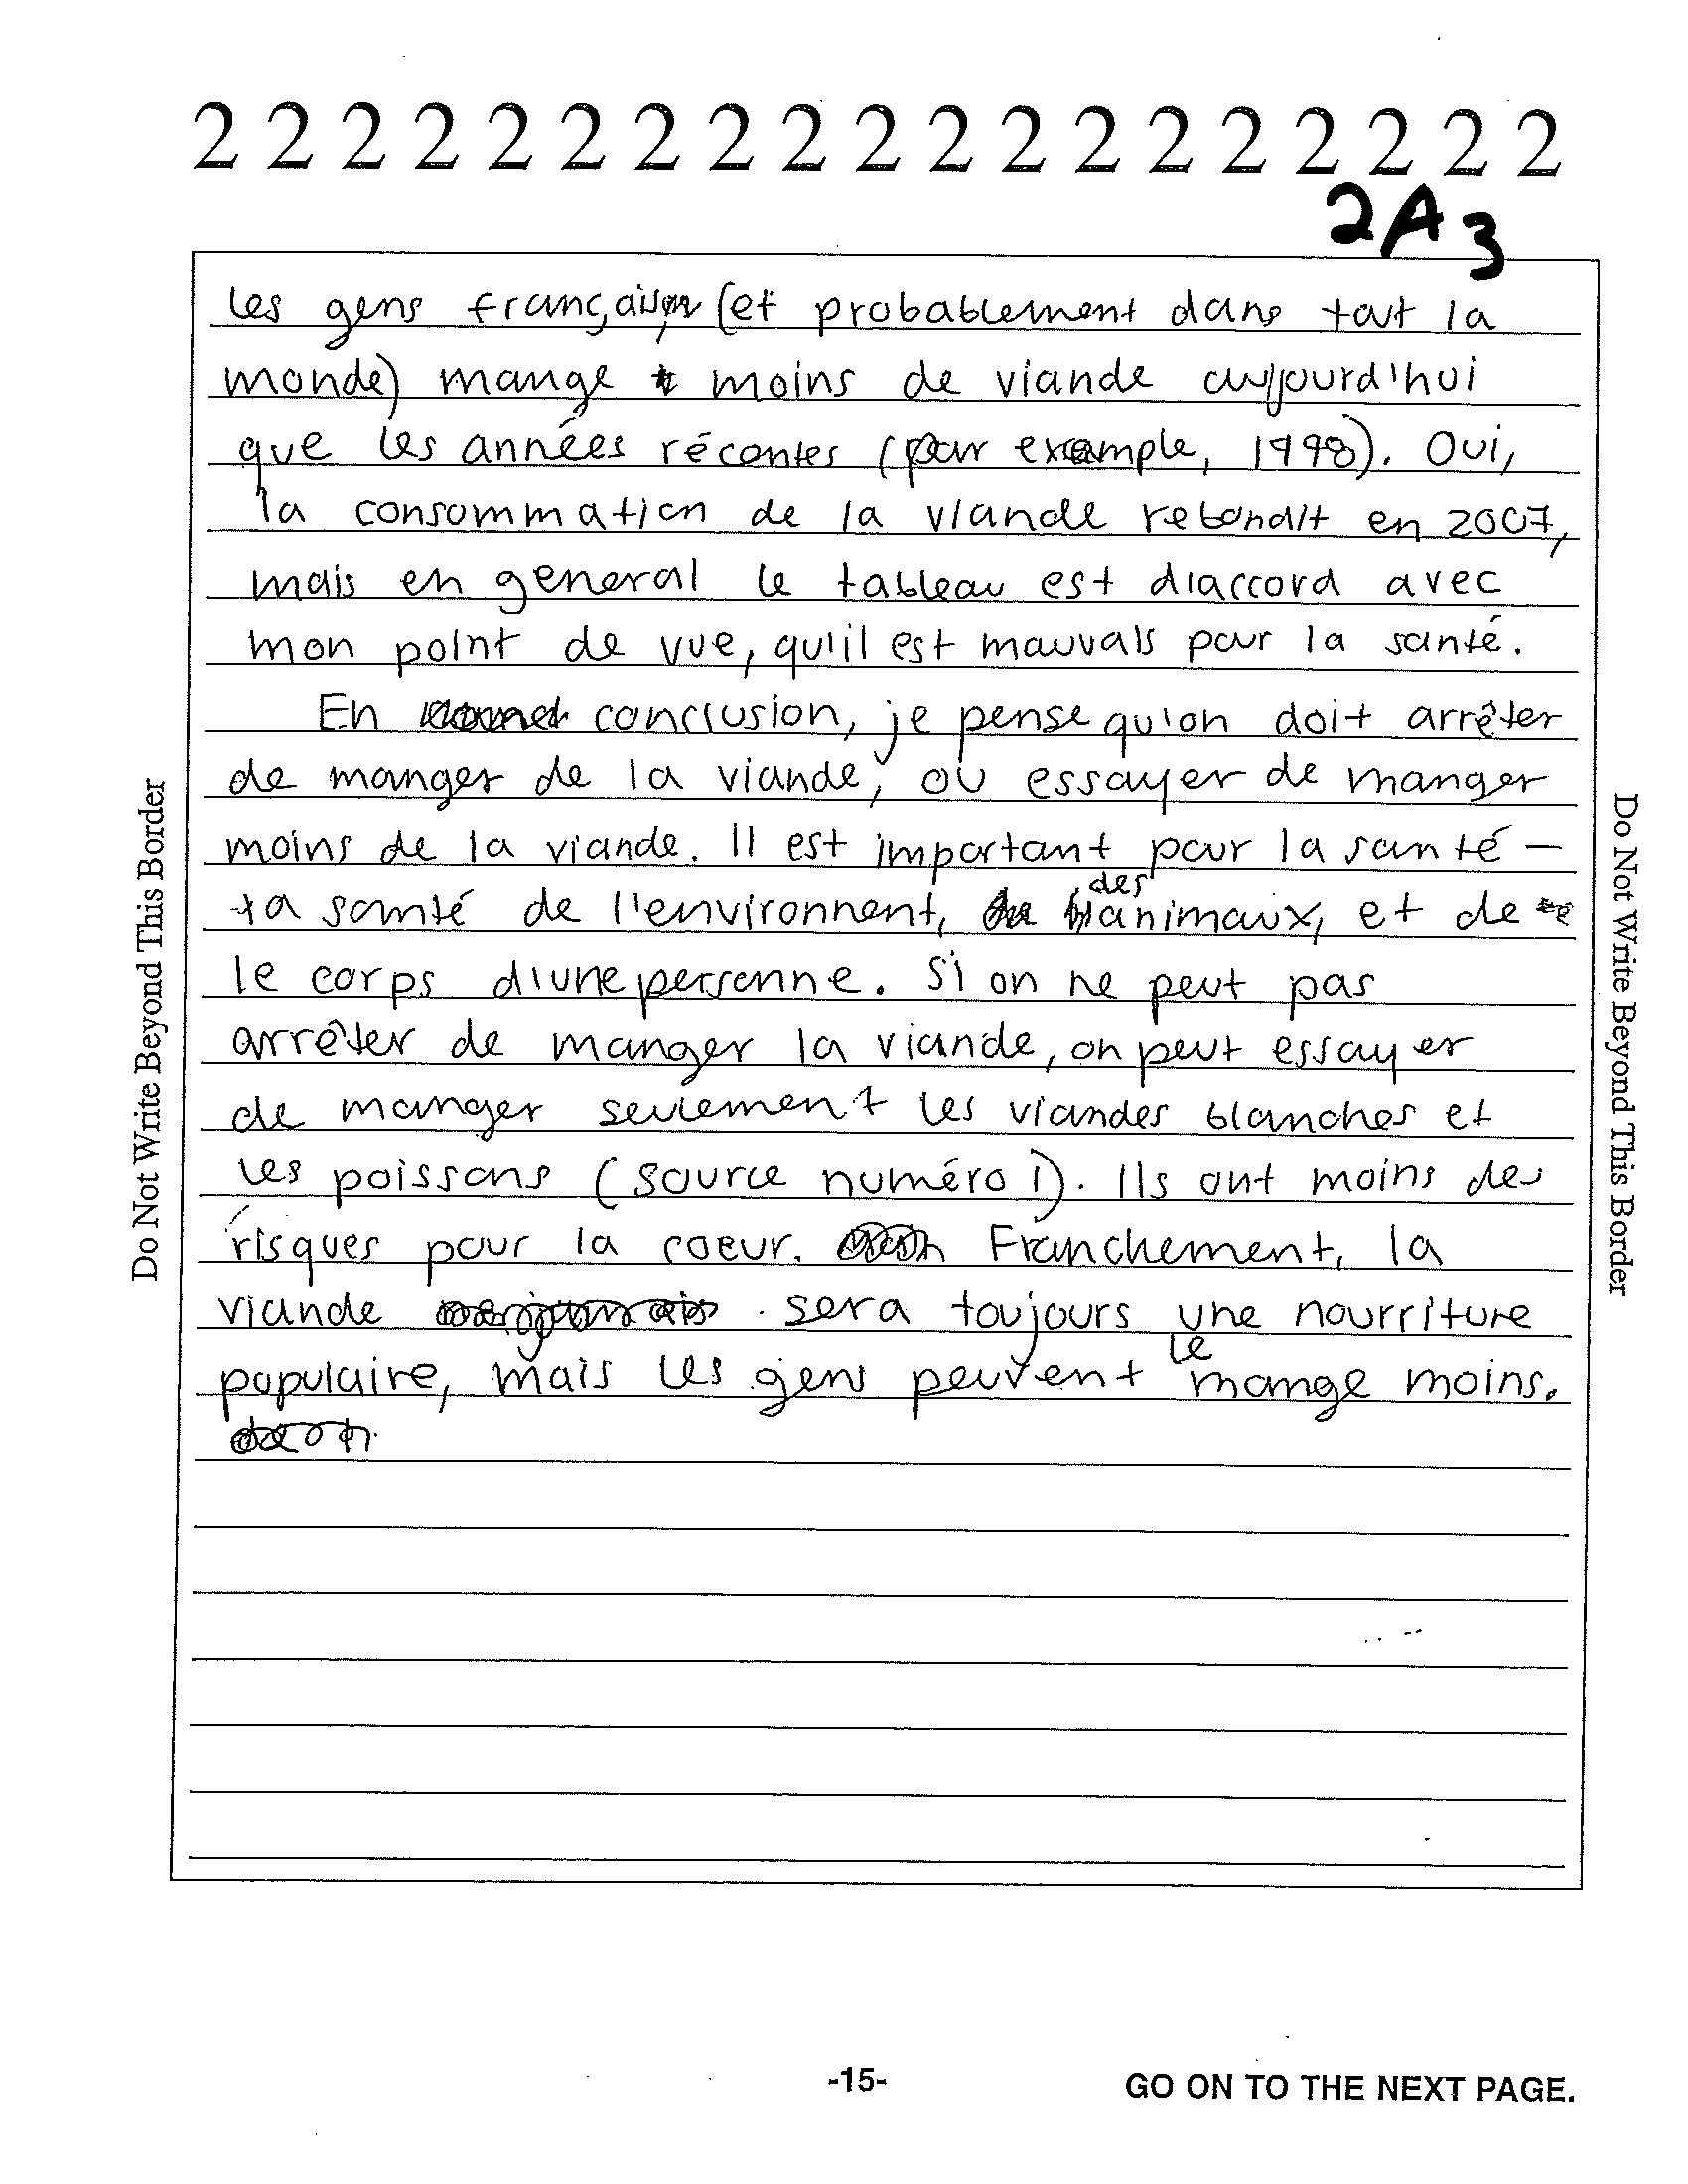 2 2 2 2 2 2 2 2 2 2 2 2 2 2 2 2 2 2 2
2A3
les gens français (et probablement dans tout la
monde) mange moins de viande aujourd'hui
que les années récentes (par example, 1998). Oui,
la consommation de la viande rebondit en 2007,
mais en general le tableau est d'accord avec
mon point de vue, qu'il est mauvais pour la santé.
En conclusion, je pense qu'on doit arrêter
de manger de la viande, ou essayer de manger
moins de la viande. Il est important pour la santé –
la santé de l'environnent, des animaux, et de
le corps d'une personne. Si on ne peut pas
arrêter de manger la viande, on peut essayer
de manger seulement les viandes blanches et
les poissons (source numéro 1). Ils ont moins des
risques pour la coeur. Franchement, la
viande sera toujours une nourriture
populaire, mais les gens peuvent le mange moins.
Do Not Write Beyond This Border
Do Not Write Beyond This Border
-15-
GO ON TO THE NEXT PAGE.